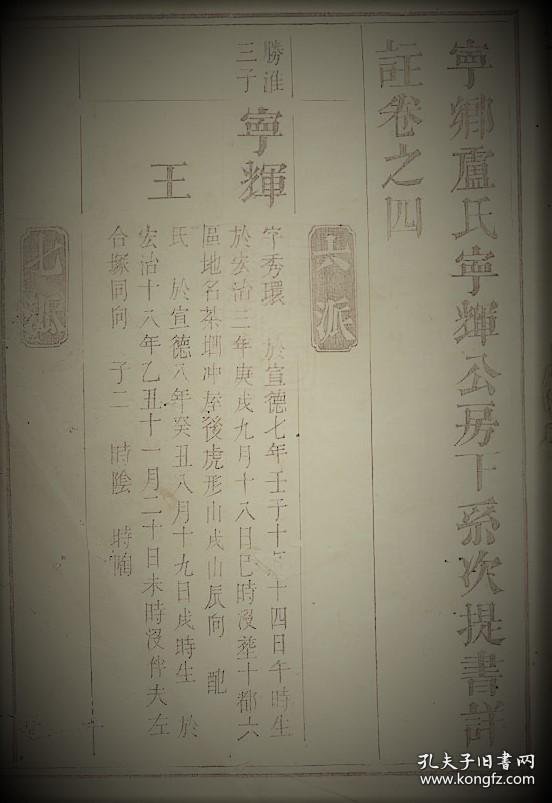 寧鄉盧氏寧輝公房下系次提書詳
註卷之四
共派
勝淮
三子
寧輝
字秀環 於宣德七年壬子十 十四日午時生
於宏治三年庚戌九月十八日巳時沒塟十都六
區地名茶 冲屋後虎形山戌山辰向 配
王
氏 於宣德八年癸丑八月十九日戌時生 於
宏治十八年乙丑十一月二十日未時沒伴夫左
合塚同向 子二 時陰 時
派
孔夫子旧书网
www.kongfz.com